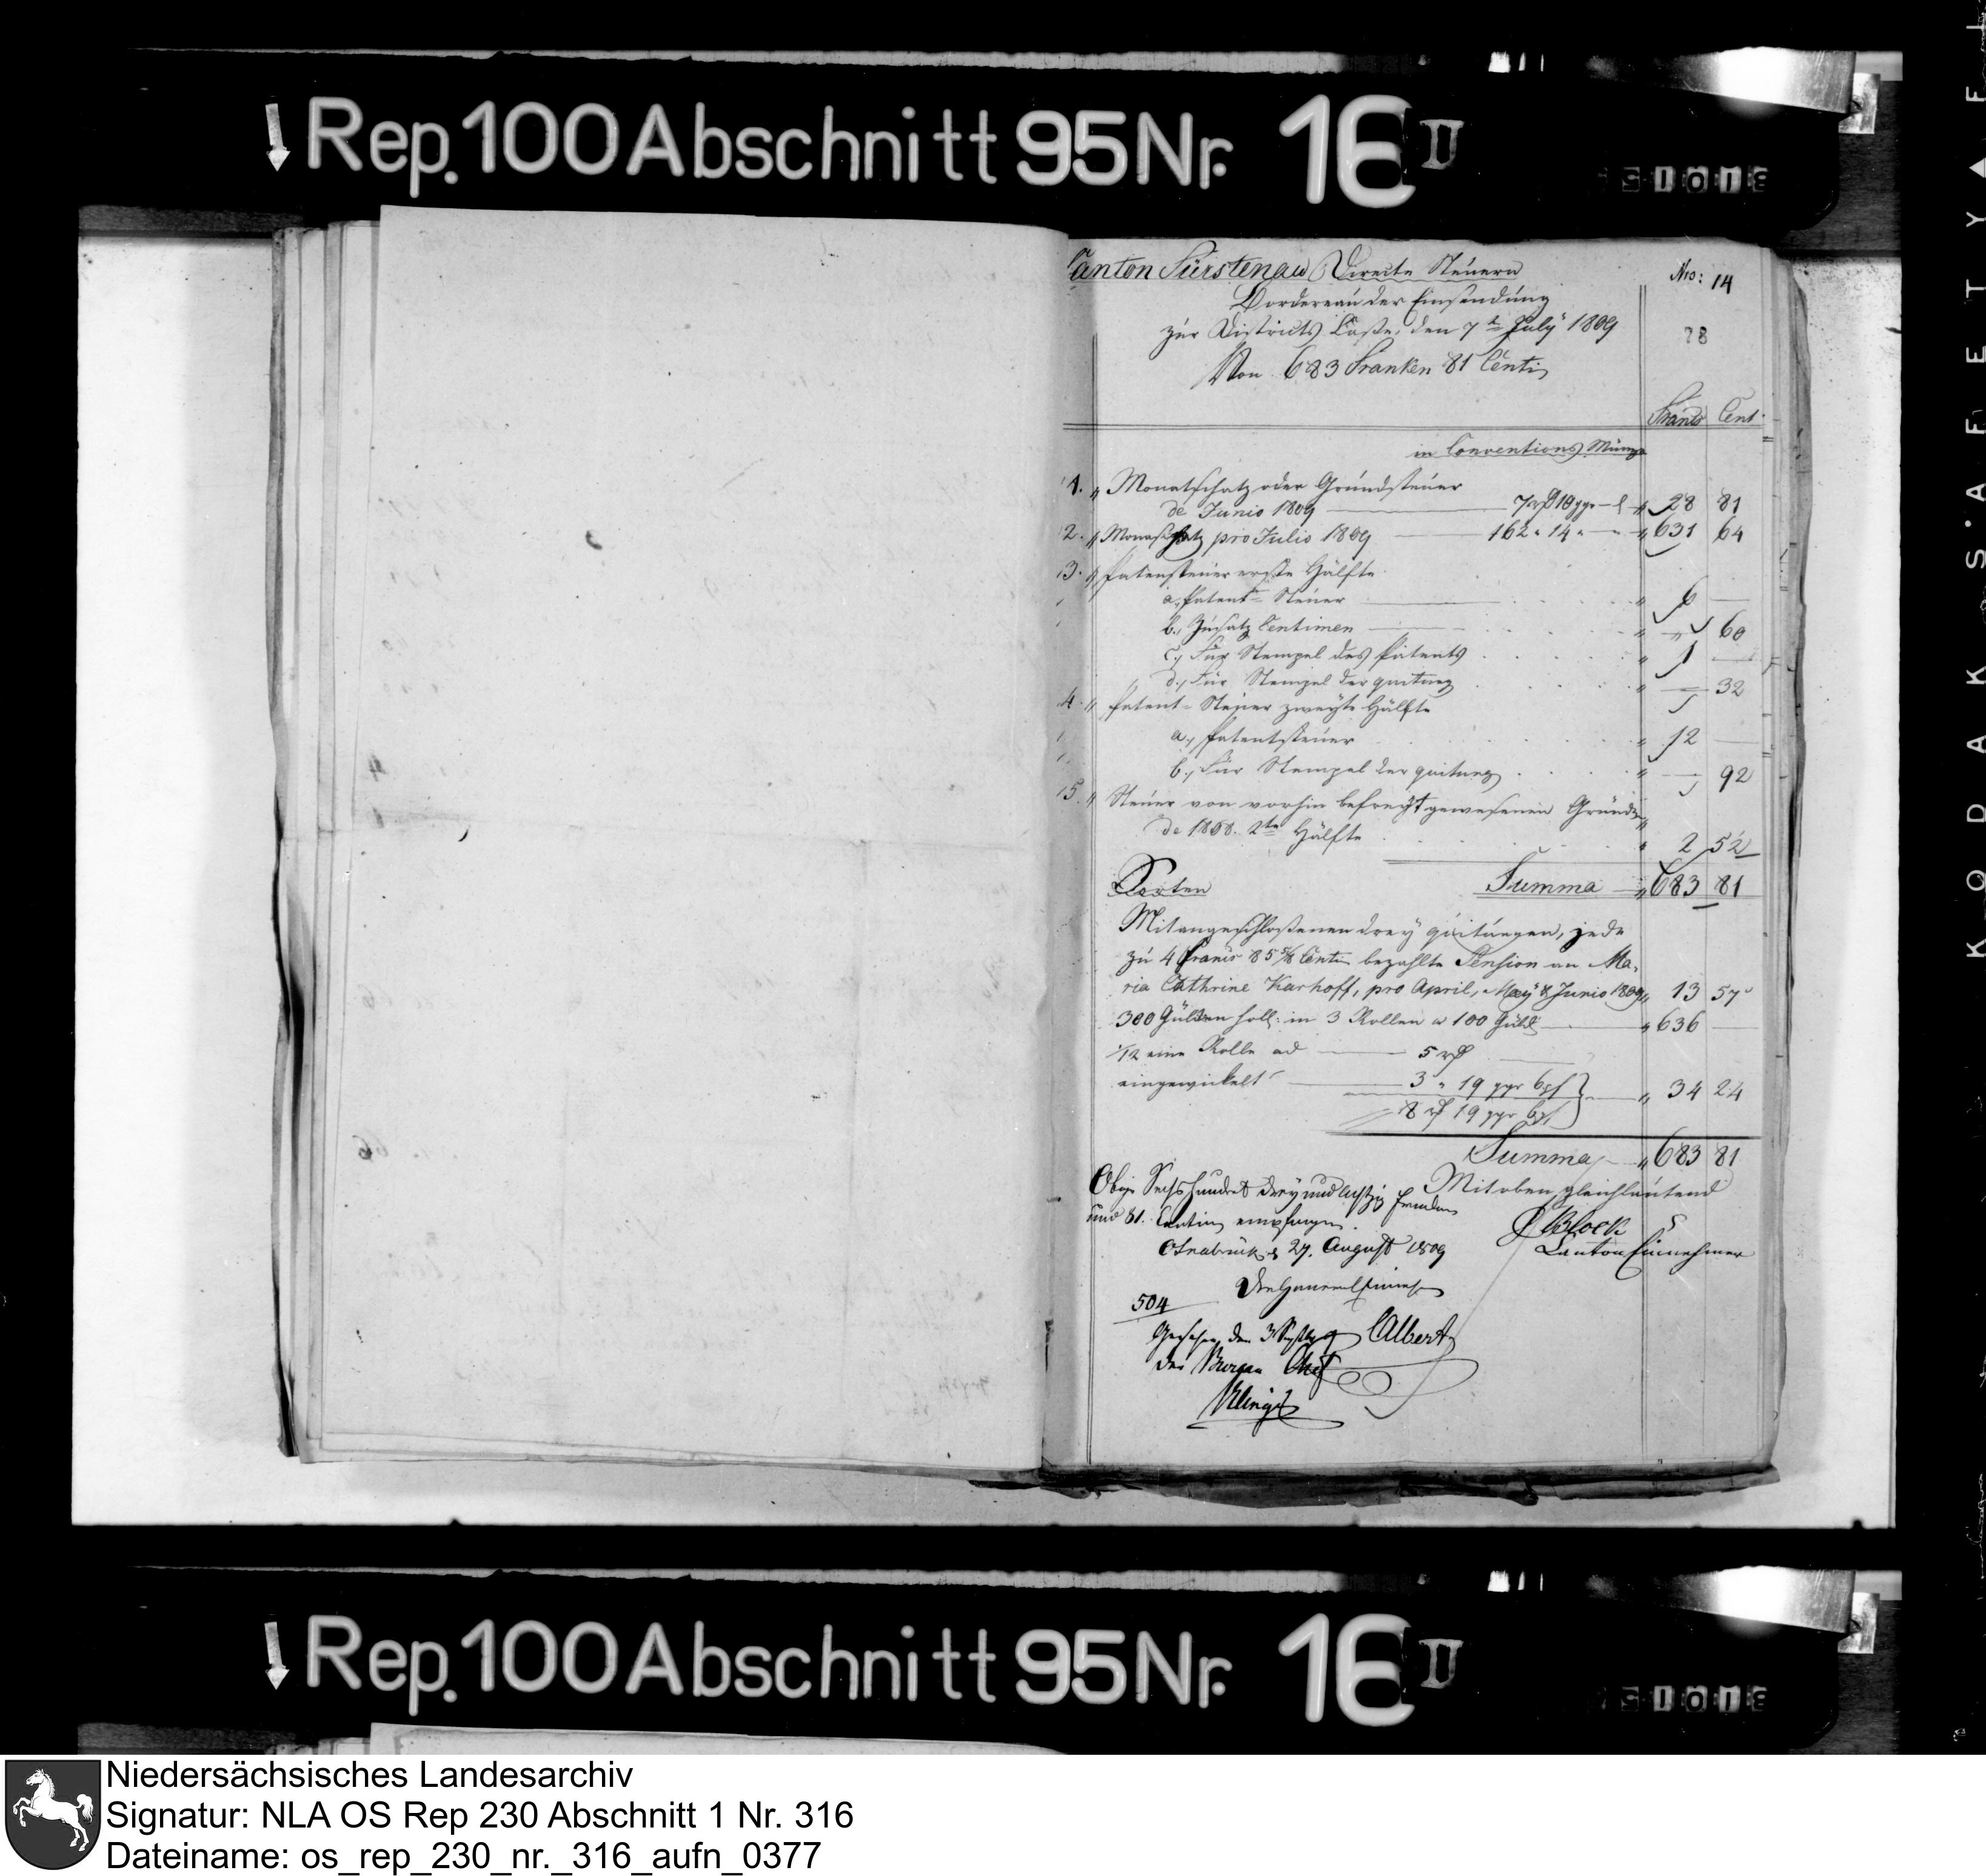 Rep. 100 Abschnitt 95 Nr. 16 II
Canton Fürstenau Directe Steuern
Nro: 14
Bordereau der Einsendung
zur Districts Casse, den 7t July 1809
78
Von 683 Franken 81 Centi
Francs Cent
in Conventions Münze
1. " Monatschatz oder Grundsteuer
de Junio 1809 28 81
2. " Monatschatz pro Julio 1809 162 " 14 " — " 631 64
3. " Patensteuer erste Hälfte
a., Patent-Steuer " 6 —
b., Zusatz Centimen " — 60
c., Für Stempel des Patents " 1 —
d., Für Stempel der quitung " — 32
4. " Patent-Steuer zweyte Hälfte
a., Patentsteuer " 12 —
b., Für Stempel der quitung " — 92
5. " Steuer von vorhin befreyt gewesenen Gründen
de 1808. 2te Hälfte " 2 52
Sorten Summa " 683 81
Mitangeschlossenen drey quitungen, jede
zu 4 Francs 85 5/8 Centi bezahlte Pension an Ma-
ria Cathrine Karhoff, pro April, May & Junio 1809 " 13 57
300 Gülden holl: in 3 Rollen a 100 Güld " 636 —
1/12 eine Rolle ad 5 rt
eingewickelt 3 " 19 ggr 6 pf " 34 24
8 rt 19 ggr 6 pf
Summa " 683 81
Mit oben gleichlautend
Block
Canton Einnehmer
Obige Sechshundert drey und achtzig Franken
und 81. Centim empfangen.
Osnabrück d 27. August 1809
Der General Einnehmer
504
Gesehen den 3 Septbr Albert
Der Bureau Chef
Rep. 100 Abschnitt 95 Nr. 16 II
KODAK SAFETY
Niedersächsisches Landesarchiv
Signatur: NLA OS Rep 230 Abschnitt 1 Nr. 316
Dateiname: os_rep_230_nr._316_aufn_0377